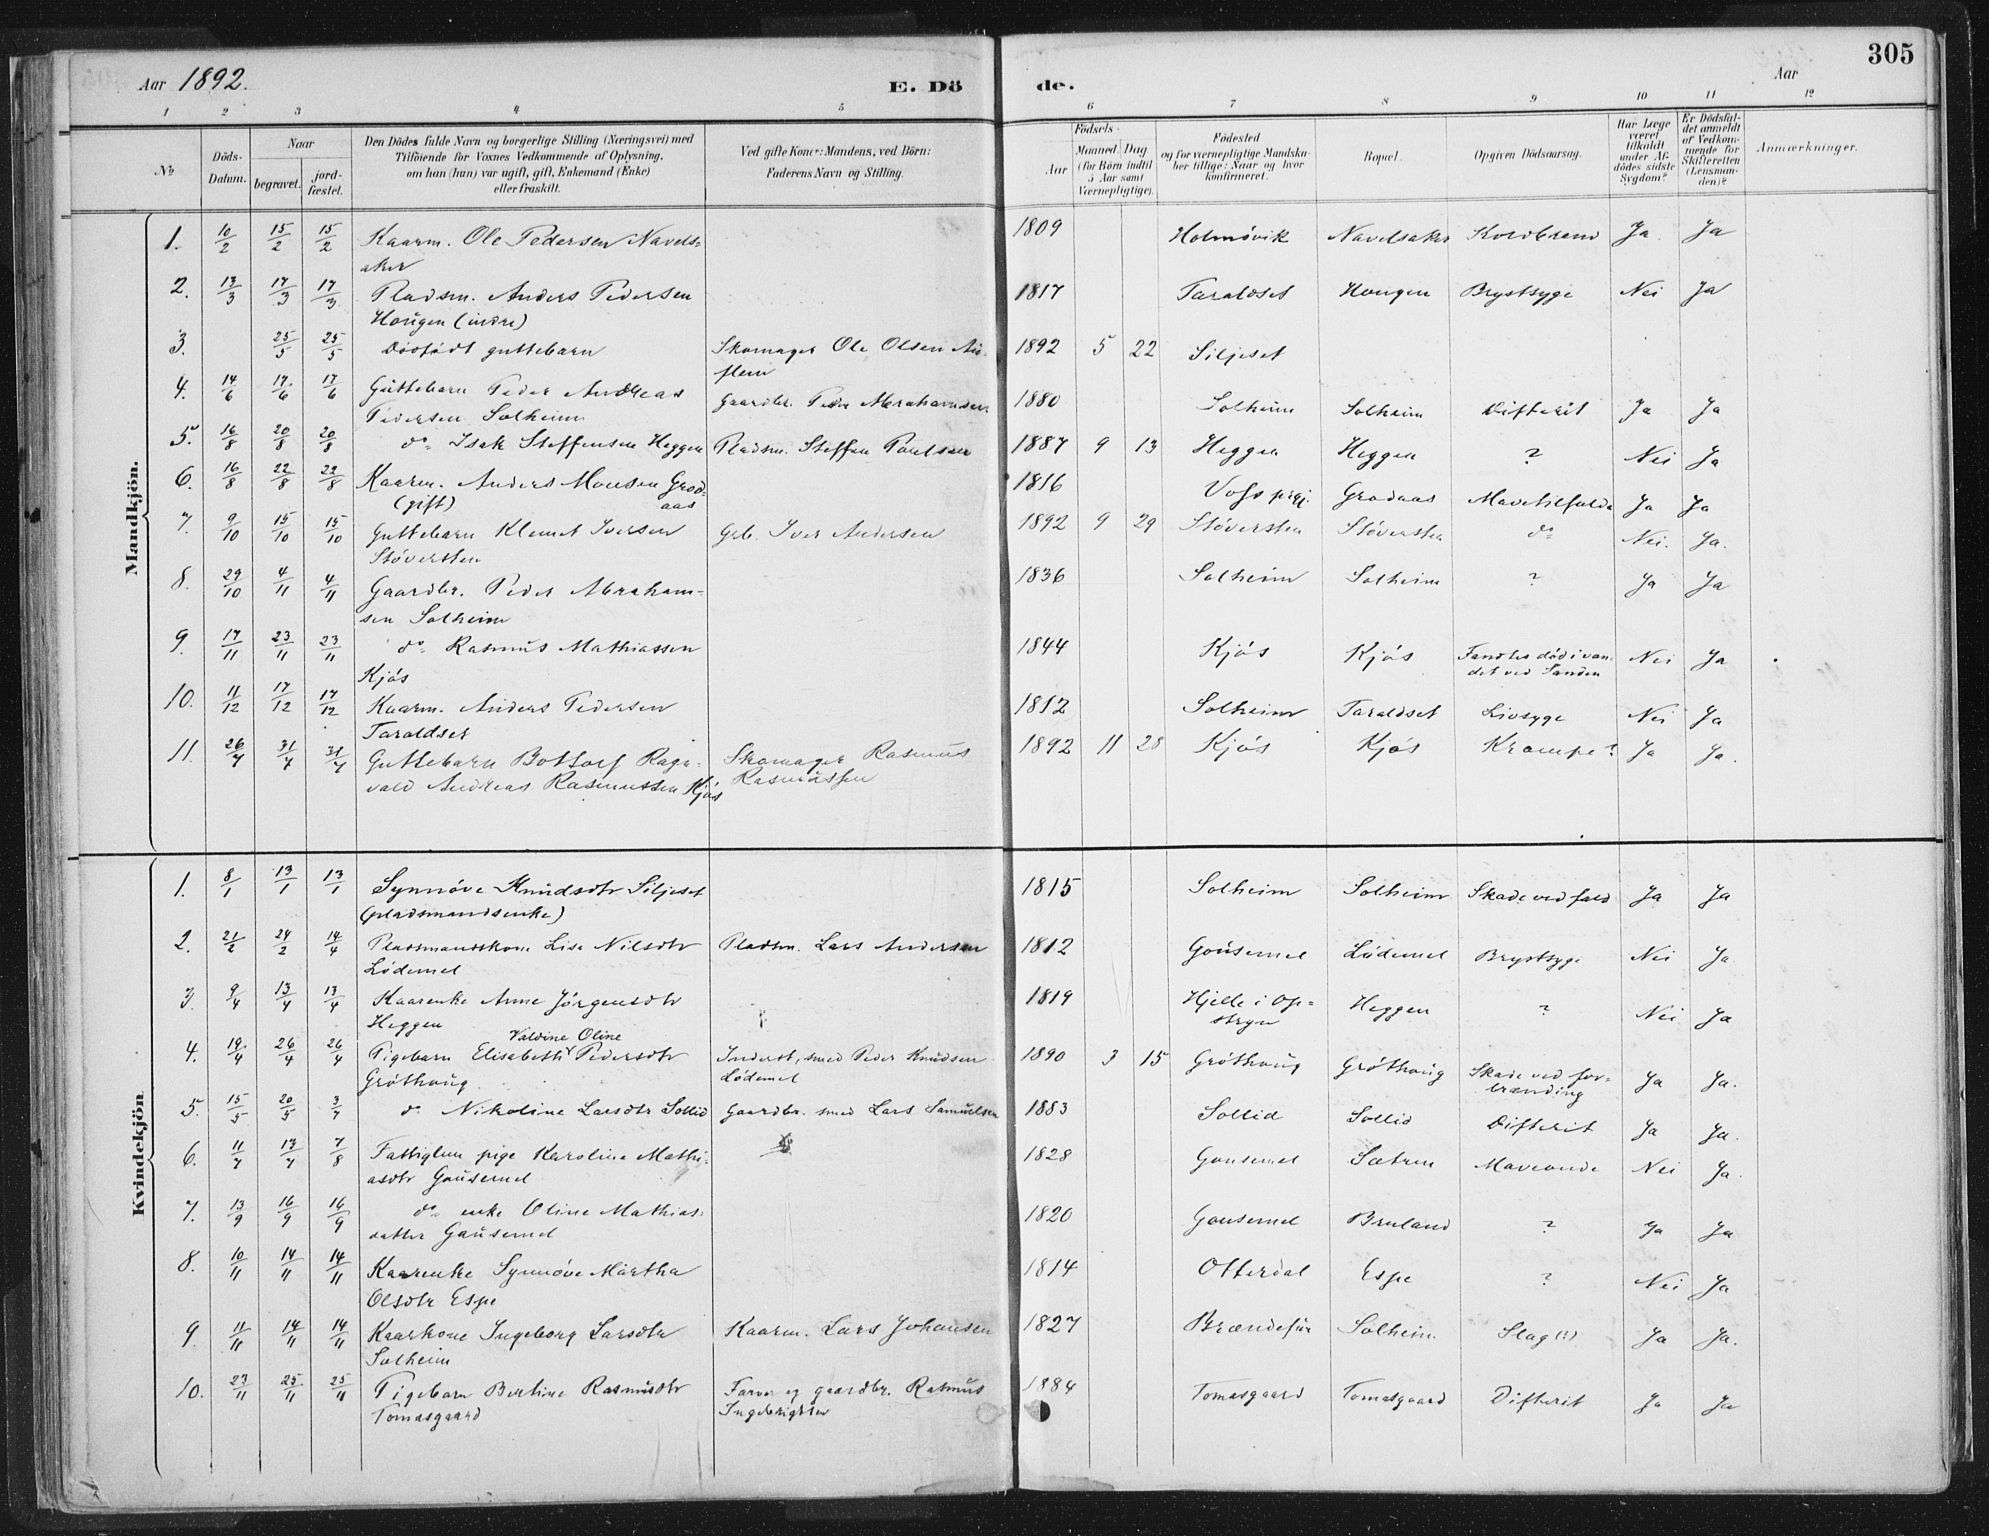 305
Aar 1892.
E. Dö
de.
Aar
1 2 3 4 5 6 7 8 9 10 11 12
No
Döds-
Datum.
Naar
begravet.
jord-
fæstet.
Den Dödes fulde Navn og borgerlige Stilling (Næringsvei) med
Tilföiende for Voxnes Vedkommende af Oplysning,
om han (hun) var ugift, gift, Enkemand (Enke)
eller fraskilt.
Ved gifte Koner: Mandens, ved Börn:
Faderens Navn og Stilling.
Födsels-
Aar
Maaned. Dag
(for Börn indtil
5 Aar samt
Værnepligtige).
Födested
og for værnepligtige Mandska-
ber tillige: Naar og hvor
konfirmeret.
Bopæl.
Opgiven Dödsaarsag.
Har Læge
været
tilkaldt
under Af-
dödes sidste
Sygdom?
Er Dödsfal-
det anmeldt
af Vedkom-
mende for
Skifteretten
(Lensman-
den)?
Anmærkninger.
Mandkjön.
1. 10/2 15/2 15/2 Kaarm. Ole Pedersen Navels- 1809 Holmövik Navelsaker Koldbrand Ja Ja
aker
2. 13/3 17/3 17/3 Pladsm. Anders Pedersen 1817 Taraldset Hougen Brystsyge Nei Ja
Hougen (indre)
3. 25/5 25/5 Dödfödt guttebarn Skomager Ole Olsen 1892 5 22 Siljeset
flem
4. 14/6 17/6 17/6 Guttebarn Peder Andreas Gaardbr. Peder Abrahamsen 1880 Solheim Solheim Difterit Ja Ja
Pedersen Solheim
5. 16/8 20/8 20/8 do Isak Steffensen Heggen Pladsm. Steffen Paulsen 1887 9 13 Heggen Heggen ? Nei Ja
6. 16/8 22/8 22/8 Kaarm. Anders Monsen Grod- 1816 Voss prgj. Grodaas Mavetilfælde Ja Ja
(gift) aas
7. 9/10 15/10 15/10 Guttebarn Klemet Iversen Grb. Iver Andersen 1892 9 29 Stöversten Stöversten do Nei. Ja.
Stöversten
8. 29/10 4/11 4/11 Gaardbr. Peder Abraham- 1836 Solheim Solheim ? Ja Ja
sen Solheim
9. 17/11 23/11 23/11 do Rasmus Mathiassen 1844 Kjös Kjös Fandtes död i van- Nei Ja
Kjös det ved Sanden
10. 11/12 17/12 17/12 Kaarm. Anders Pedersen 1812 Solheim Taraldset Livsyge Nei Ja
Taraldset
11. 26/7 31/7 31/7 Guttebarn Bottolf Ragn- Skomager Rasmus 1892 11 28 Kjös Kjös Krampe? Ja Ja.
vald Andreas Rasmussen Kjös Rasmussen
Kvindekjön.
1. 8/1 13/1 13/1 Synnöve Knudsdtr Siljeset 1815 Solheim Solheim Skade ved fald Ja Ja
(pladsmandsenke)
2. 21/2 24/2 14/4 Pladsmandskone Lise Nilsdtr Pladsm. Lars Andersen 1812 Gousemel Lödemel Brystsyge Nei Ja
Lödemel
3. 9/4 13/4 13/4 Kaarenke Anne Jörgensdtr 1819 Hjelle i Op- Heggen ? Nei Ja
Heggen stryn
Valdine Oline
4. 19/4 26/4 26/4 Pigebarn Elisabeth Pedersdtr Inderst, smed Peder Knudsen 1890 3 15 Gröthoug Gröthoug Skade ved for- Ja Ja.
Gröthoug Lödemel brænding
5. 15/5 20/5 3/7 do Nikoline Larsdtr Sollid Gaardbr. smed Lars Samuelsen 1883 Sollid Sollid Difterit Ja Ja.
6. 11/7 17/7 7/8 Fattiglem pige Karoline Mathi- 1828 Gousemel Sætren Maveonde Nei Ja.
asdtr Gousemel
7. 13/9 16/9 16/9 do enke Oline Mathias- 1820 Gousemel Bruland ? Ja Ja
datter Gausemel
8. 10/11 14/11 14/11 Kaarenke Synnöve Martha 1814 Otterdal Espe ? Nei Ja
Olsdtr Espe
9. 11/11 14/11 14/11 Kaarkone Ingeborg Larsdtr Kaarm. Lars Johansen 1827 Solheim Slag (?) Ja Ja.
Solheim
10. 23/11 25/11 25/11 Pigebarn Bertine Rasmusdtr Farver og gaardbr. Rasmus 1884 Tomasgaard Tomasgaard Difterit Ja Ja
Tomasgaard Ingebrigtsen